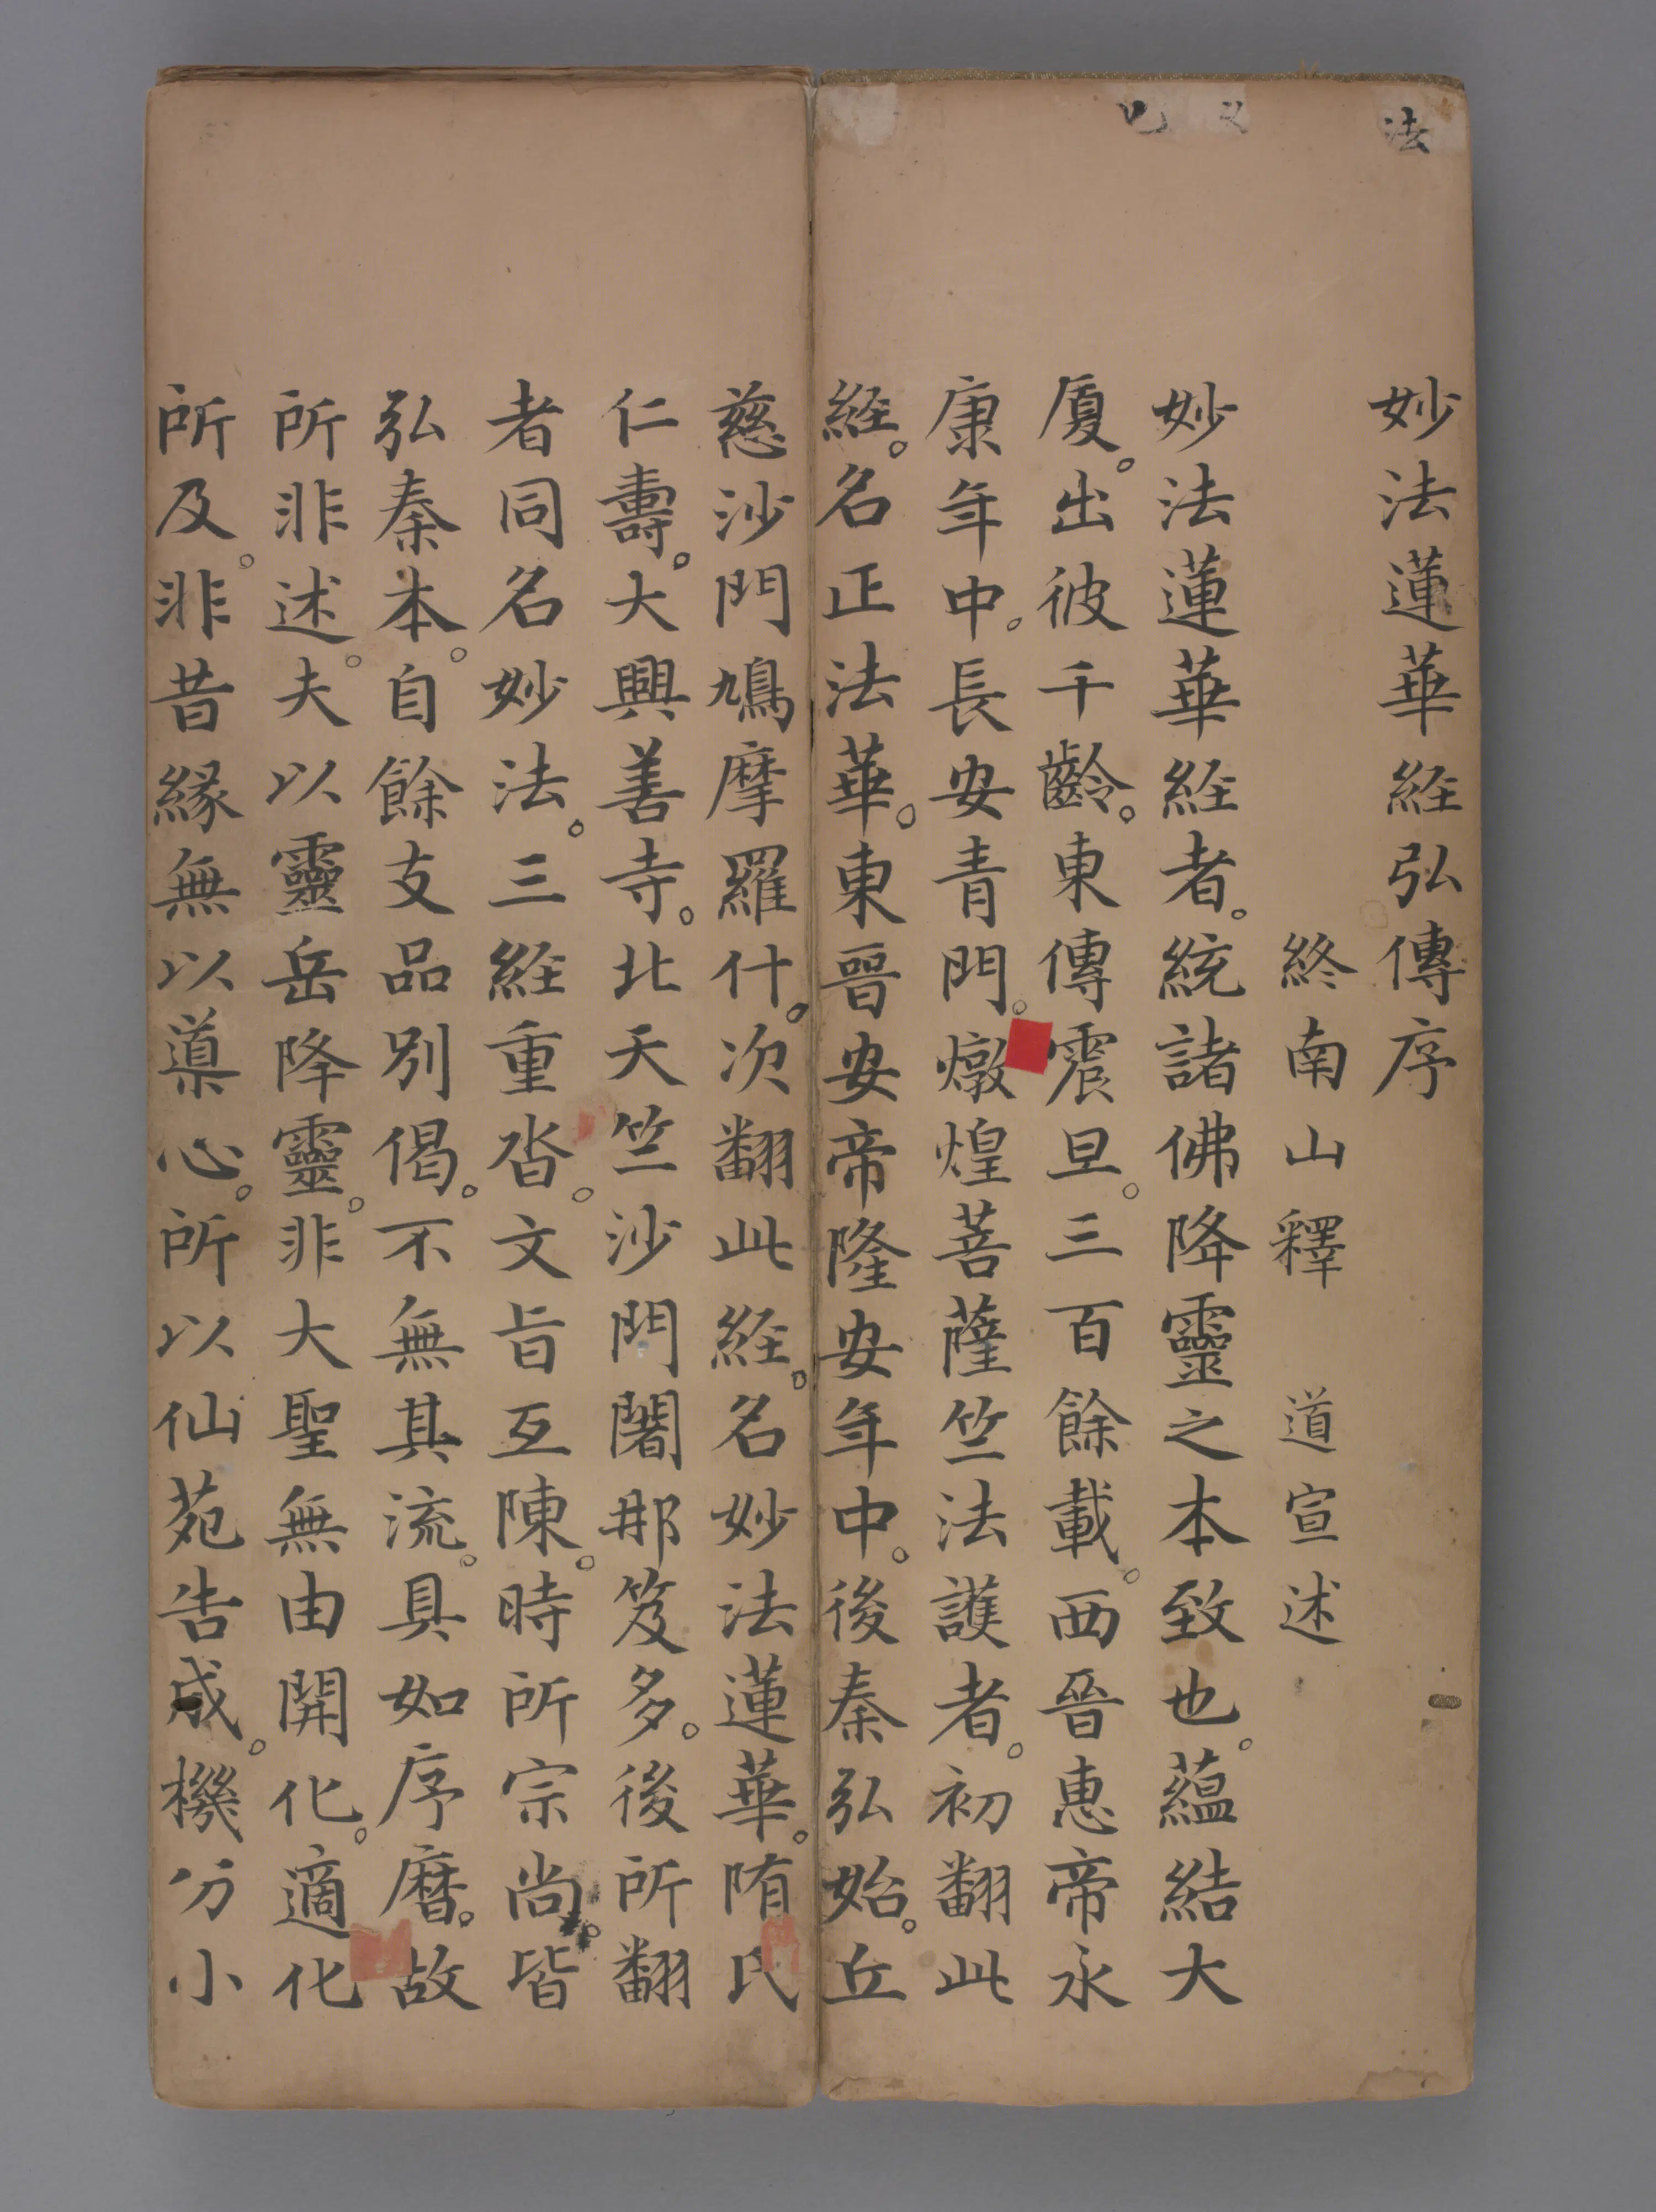 法
妙法蓮華経弘傳序
終南山釋 道宣述
妙法蓮華経者。統諸佛降靈之本致也。蘊結大
厦。出彼千齡。東傳震旦。三百餘載。西晉惠帝永
康年中。長安青門。燉煌菩薩竺法護者。初翻此
経。名正法華。東晉安帝隆安年中。後秦弘始。丘
慈沙門鳩摩羅什。次翻此経。名妙法蓮華。隋氏
仁壽。大興善寺。北天竺沙門闍那笈多。後所翻
者同名妙法。三経重沓。文旨互陳。時所宗尚。皆
弘秦本。自餘支品別偈。不無其流。具如序曆。故
所非述。夫以靈岳降靈。非大聖無由開化。適化
所及。非昔縁無以導心。所以仙苑告成。機分小